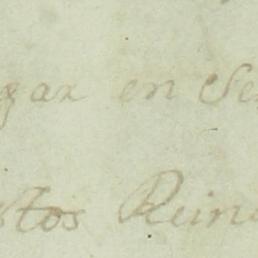 gar en Se
stos Reino